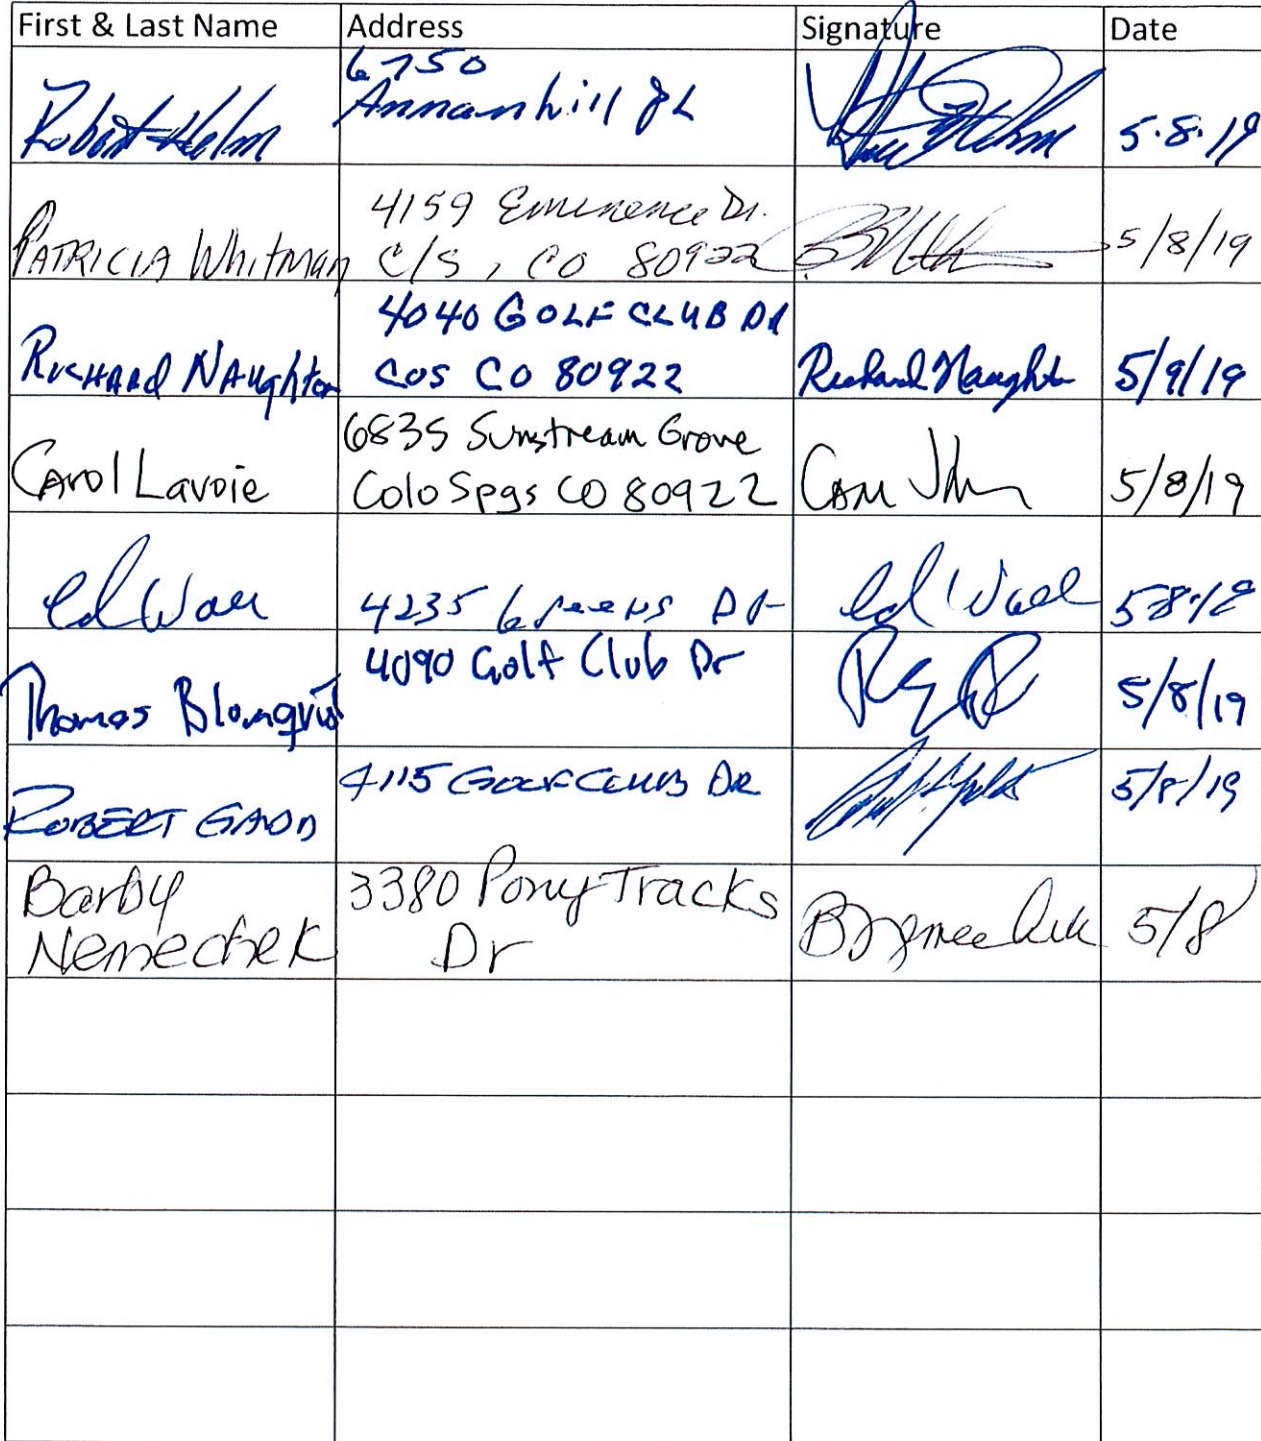 First & Last Name Address Signature Date
Robert Helm 6750 Annanhill Pl 5.8.19
PATRICIA Whitman 4159 Eminence Dr. 5/8/19
C/S, CO 80922
RICHARD NAughton 4040 GOLF CLUB DR Richard Naughton 5/9/19
COS CO 80922
Carol Lavoie 6835 Sunstream Grove 5/8/19
Colo Spgs CO 80922
Ed Wall 4235 Greens Dr Ed Wall
Thomas Blomqvist 4090 Golf Club Dr 5/8/19
ROBERT 4115 GOLF CLUB DR 5/8/19
Barby 3380 Pony Tracks 5/8
Nemechek Dr